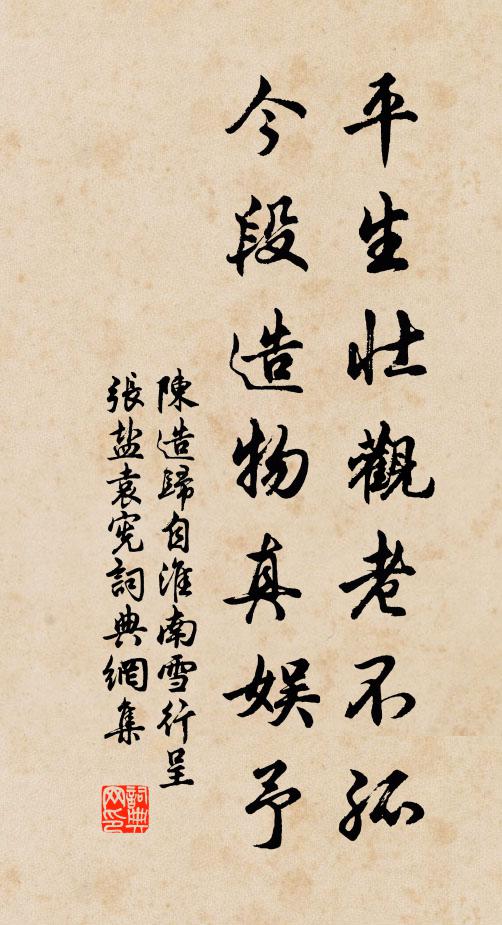 平生壯觀老不孤
今段造物真娛予
陳造歸自淮南雪行呈
張盐袁宪詞典網集
詞典网印